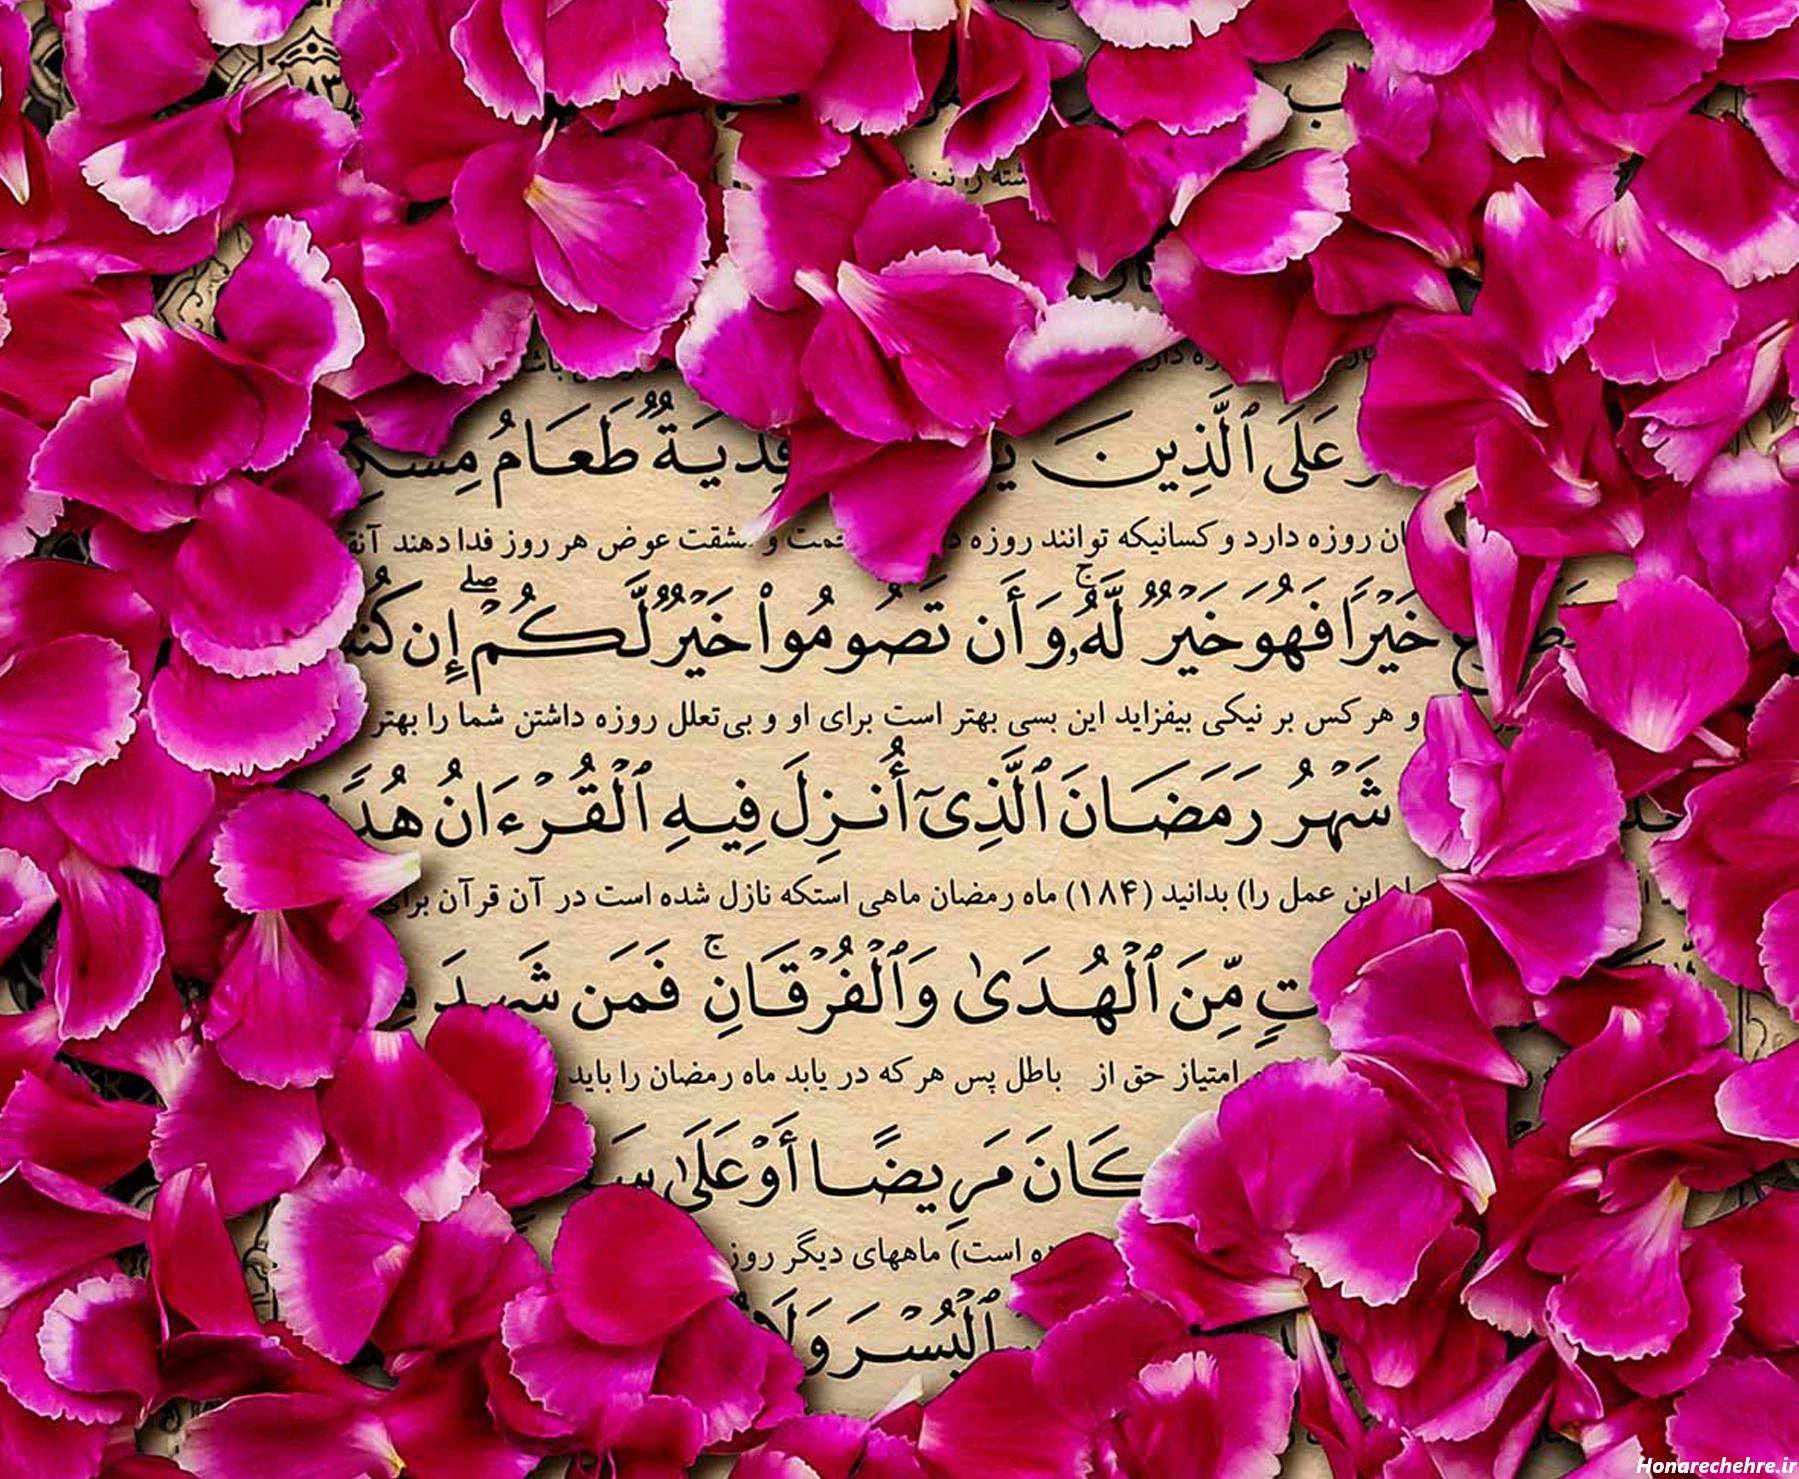 ۱۸۳
شته را نیز
باشد
عَلَى ٱلَّذِينَ فِدْيَةٌ طَعَامُ مِسْكِ
ان روزه دارد و کسانیکه توانند روزه و مشقت عوض هر روز فدا دهند آنق
خَيْرًا فَهُوَ خَيْرٌ لَّهُۥ ۚ وَأَن تَصُومُوا۟ خَيْرٌ لَّكُمْ ۖ إِن كُن
و هر کس بر نیکی بیفزاید این بسی بهتر است برای او و بی‌تعلل روزه داشتن شما را بهتر
شَهْرُ رَمَضَانَ ٱلَّذِىٓ أُنزِلَ فِيهِ ٱلْقُرْءَانُ هُدً
این عمل را) بدانید (۱۸۴) ماه رمضان ماهی استکه نازل شده است در آن قرآن برای
تٍ مِّنَ ٱلْهُدَىٰ وَٱلْفُرْقَانِ ۚ فَمَن شَهِدَ مِ
امتیاز حق از باطل پس هر که در یابد ماه رمضان را باید
كَانَ مَرِيضًا أَوْ عَلَىٰ سَ
ده است) ماههای دیگر روز
ٱلْيُسْرَ وَلَا
Honarechehre.ir